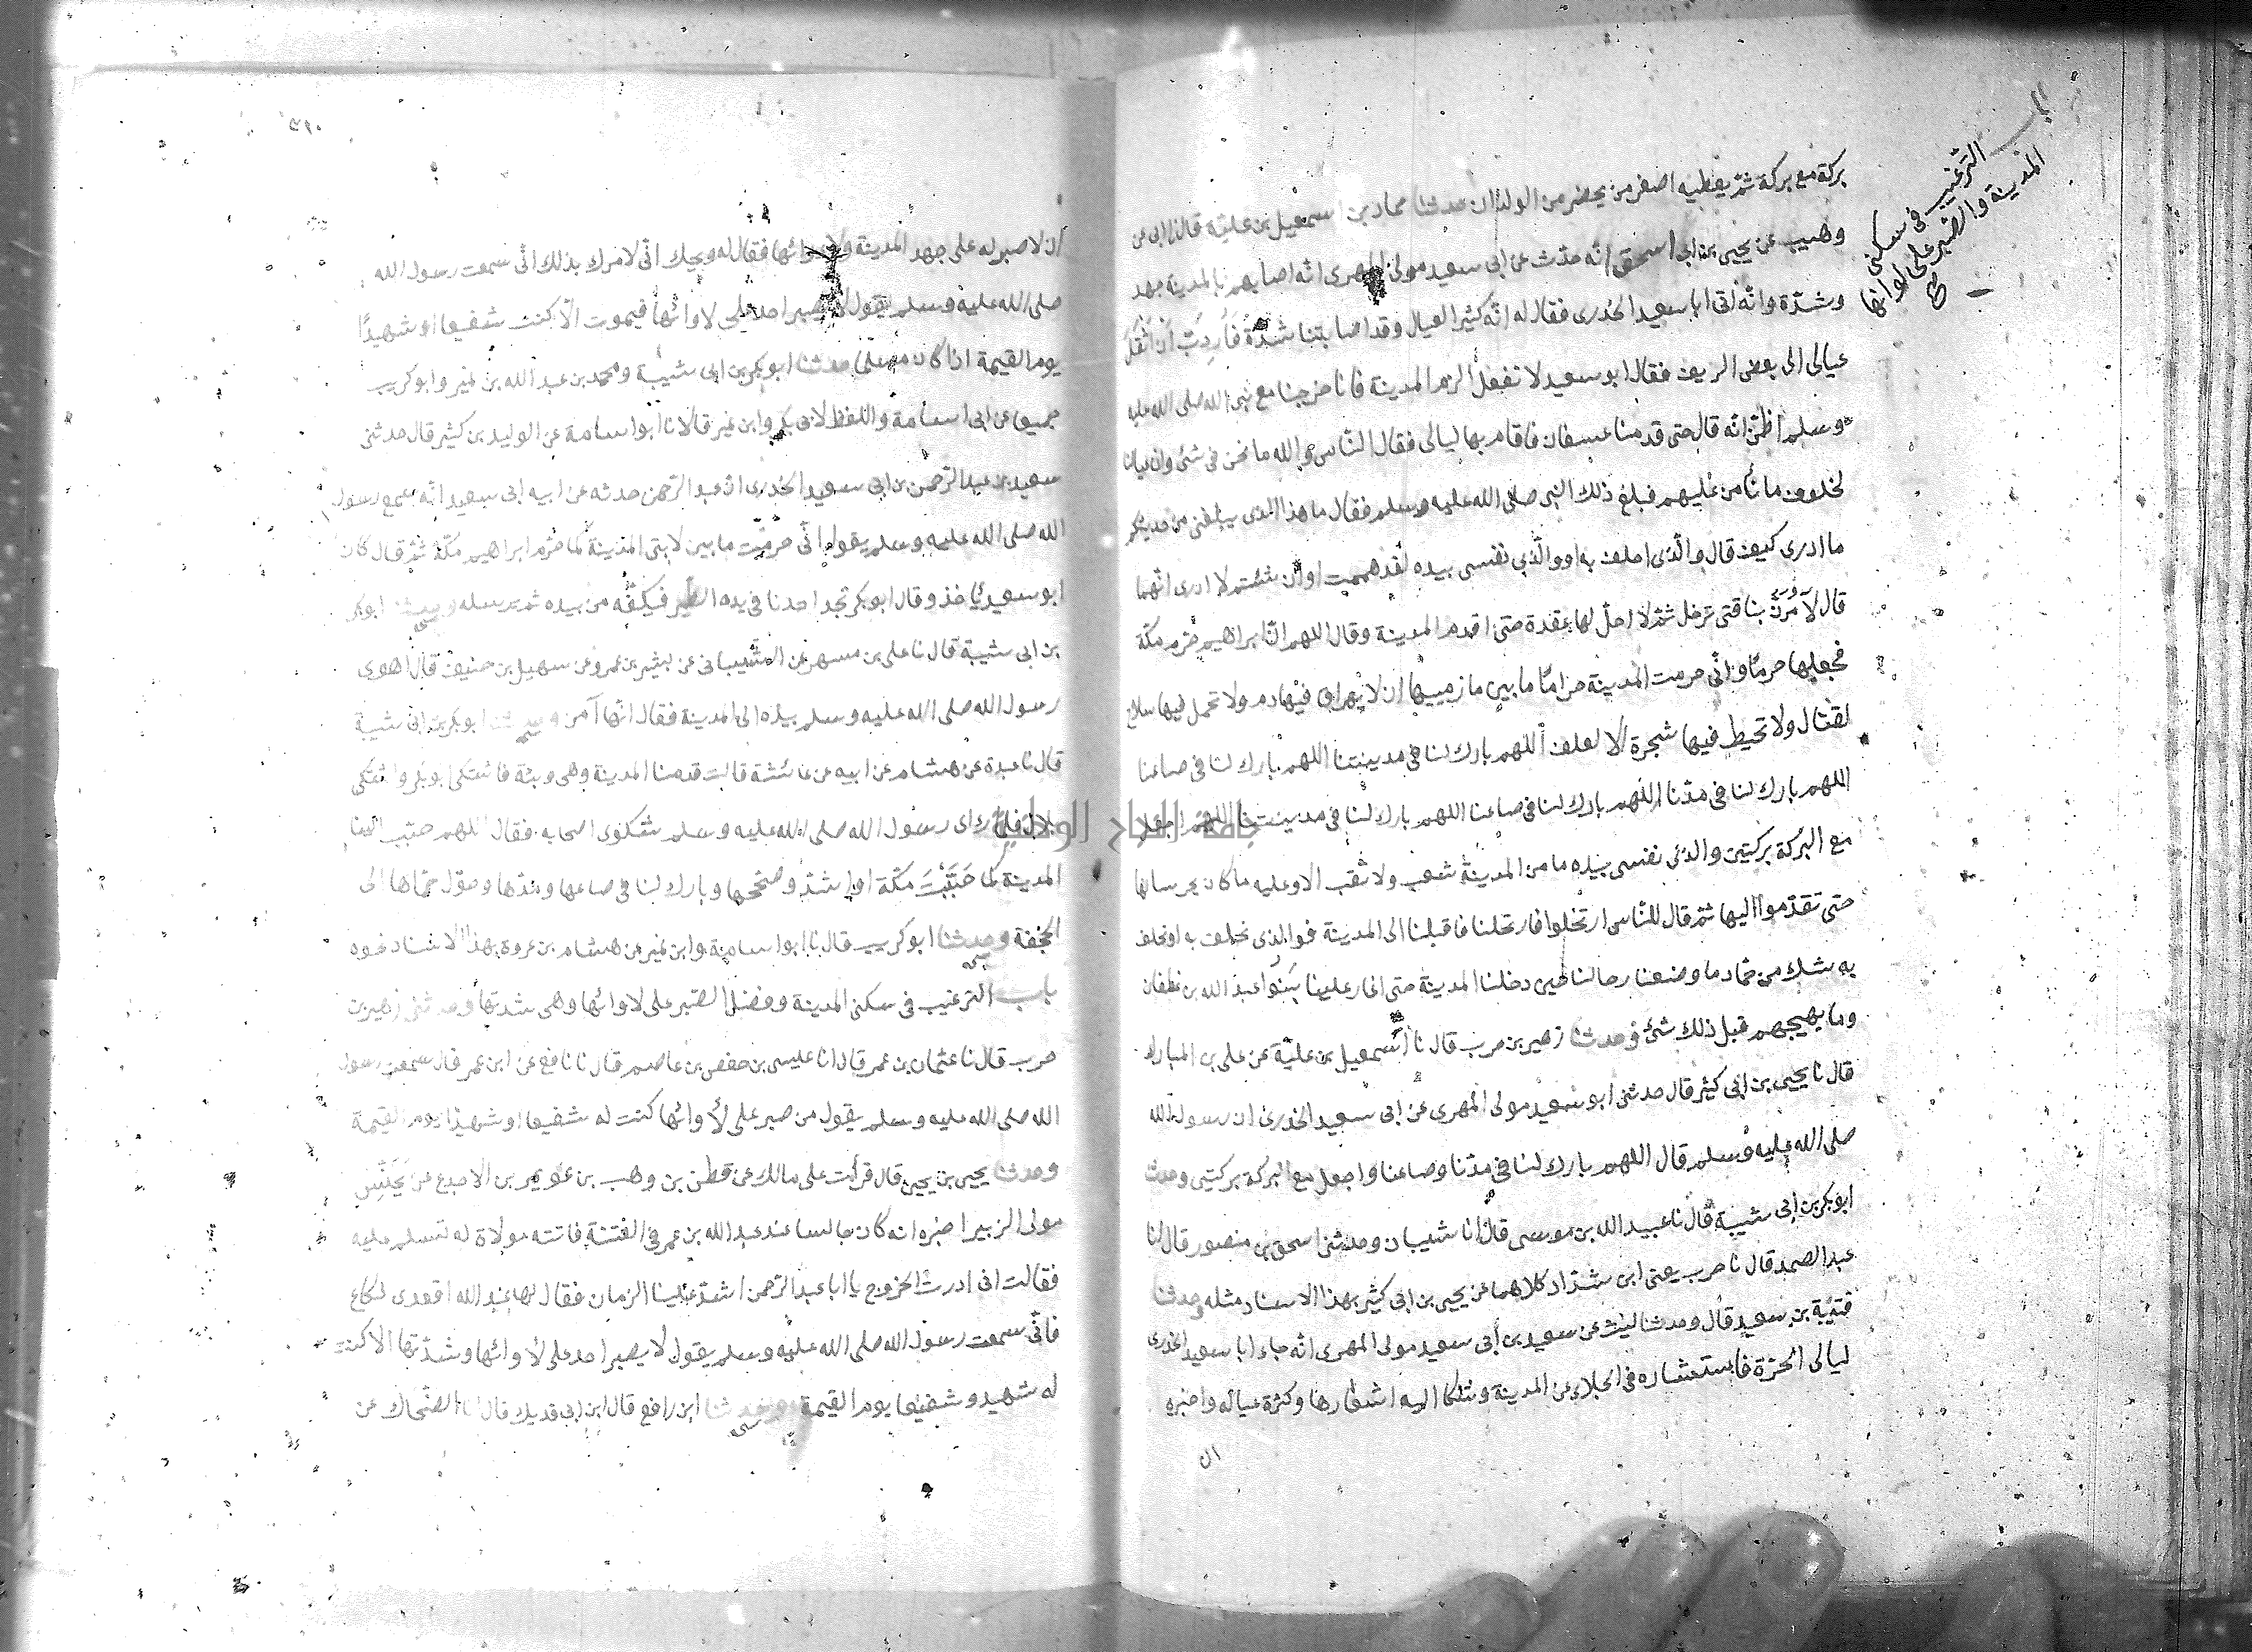 باب
الترغيب في سكنى
المدينة والصبر على لاوائها
بركة مع بركة ثم يعطيه اصغر من يحضر من الولدان حدثنا حماد بن اسمعيل بن علية قال نا ابى عن
وهيب عن يحيى بن ابى اسحق انه حدث عن ابى سعيد مولى المهرى انه اصابهم بالمدينة جهد
وشدة وانه اتى ابا سعيد الخدرى فقال له انى كثير العيال وقد اصابتنا شدة فاردت ان انقل
عيالى الى بعض الريف فقال ابو سعيد لا تفعل الزم المدينة فانا خرجنا مع نبى الله صلى الله عليه
وسلم اظن انه قال حتى قدمنا عسفان فاقام بها ليالى فقال الناس والله ما نحن فى شئ وان عيالنا
لخلوف ما نأمن عليهم فبلغ ذلك النبى صلى الله عليه وسلم فقال ما هذا الذى يبلغنى من حديثكم
ما ادرى كيف قال والذى احلف به او والذي نفسى بيده لقد هممت او ان شئتم لا ادرى ايتهما
قال لآمرن بناقتى ترحل ثم لا احل لها عقدة حتى اقدم المدينة وقال اللهم ان ابراهيم حرم مكة
فجعلها حرما وانى حرمت المدينة حراما ما بين مازميها ان لا يهراق فيها دم ولا تحمل فيها سلاح
لقتال ولا تخبط فيها شجرة الا لعلف اللهم بارك لنا فى مدينتنا اللهم بارك لنا فى صاعنا
اللهم بارك لنا فى مدنا اللهم بارك لنا فى صاعنا اللهم بارك لنا فى مدينتنا اللهم اجعل
مع البركة بركتين والذى نفسى بيده ما من المدينة شعب ولا نقب الا وعليه ملكان يحرسانها
حتى تقدموا اليها ثم قال للناس ارتحلوا فارتحلنا فاقبلنا الى المدينة فوالذى نحلف به او نحلف
به شك من حماد ما وضعنا رحالنا حين دخلنا المدينة حتى اغار علينا بنوا عبد الله بن غطفان
وما يهيجهم قبل ذلك شئ وحدثنا زهير بن حرب قال نا اسمعيل بن علية عن على بن المبارك
قال نا يحيى بن ابى كثير قال حدثنى ابو سعيد مولى المهرى عن ابى سعيد الخدرى ان رسول الله
صلى الله عليه وسلم قال اللهم بارك لنا فى مدنا وصاعنا واجعل مع البركة بركتين وحدثنا
ابو بكر بن ابى شيبة قال نا عبيد الله بن موسى قال انا شيبان وحدثنى اسحق بن منصور قال انا
عبد الصمد قال نا حرب يعنى ابن شداد كلاهما عن يحيى بن ابى كثير بهذا الاسناد مثله وحدثنا
قتيبة بن سعيد قال وحدثنا ليث عن سعيد بن أبى سعيد مولى المهرى انه جاء ابا سعيد الخدرى
ليالى الحرة فاستشاره فى الجلاء من المدينة وشكا اليه اسعارها وكثرة عياله واخبره
ان
ان لا صبر له على جهد المدينة ولاوائها فقال له ويحك انى لا امرك بذلك انى سمعت رسول الله
صلى الله عليه وسلم يقول لا يصبر احد على لاوائها فيموت الا كنت شفيعا او شهيدا
يوم القيمة اذا كان مسلما حدثنا ابو بكر بن ابى شيبة ومحمد بن عبد الله بن نمير وابو كريب
جميعا عن ابى اسامة واللفظ لابى بكر وابن نمير قالا نا ابو اسامة عن الوليد بن كثير قال حدثنى
سعيد بن عبد الرحمن بن ابى سعيد الخدرى ان عبد الرحمن حدثه عن ابيه ابى سعيد انه سمع رسول
الله صلى الله عليه وسلم يقول انى حرمت ما بين لابتى المدينة كما حرم ابراهيم مكة ثم قال كان
ابو سعيد ياخذ وقال ابو بكر تجد احدنا فى يده الطير فيكفه من بيده ثم يرسله وحدثنا ابو بكر
بن ابى شيبة قال نا على بن مسهر عن الشيبانى عن يسير بن عمرو عن سهيل بن حنيف قال اهوى
رسول الله صلى الله عليه وسلم بيده الى المدينة فقال انها آمن وحدثنا ابو بكر بن ابى شيبة
قال نا عبدة عن هشام عن ابيه عن عائشة قالت قدمنا المدينة وهى وبئة فاشتكى ابو بكر واشتكى
بلال فلما راى رسول الله صلى الله عليه وسلم شكوى اصحابه فقال اللهم حبب الينا
المدينة كما حببت مكة او اشد وصححها وبارك لنا فى صاعها ومدها وحول حماها الى
الجحفة وحدثنا ابو كريب قال نا ابو اسامة وابن نمير عن هشام بن عروة بهذا الاسناد نحوه
باب الترغيب فى سكنى المدينة وفضل الصبر على لاوائها وهى شدتها وحدثنى زهير بن
حرب قال نا عثمان بن عمر قال انا عيسى بن حفص بن عاصم قال نا نافع عن ابن عمر قال سمعت رسول
الله صلى الله عليه وسلم يقول من صبر على لأوائها كنت له شفيعا او شهيدا يوم القيمة
وحدثنا يحيى بن يحيى قال قرأت على مالك عن قطن بن وهب بن عويمر بن الاجدع عن يحنس
مولى الزبير اخبره انه كان جالسا عند عبد الله بن عمر فى الفتنة فاتته مولاة له تسلم عليه
فقالت انى اردت الخروج يا ابا عبد الرحمن اشتد علينا الزمان فقال لها عبد الله اقعدى لكاع
فانى سمعت رسول الله صلى الله عليه وسلم يقول لا يصبر احد على لأوائها وشدتها الا كنت
له شهيد وشفيعا يوم القيمة وحدثنا ابن رافع قال ابن ابى فديك قال انا الضحاك عن